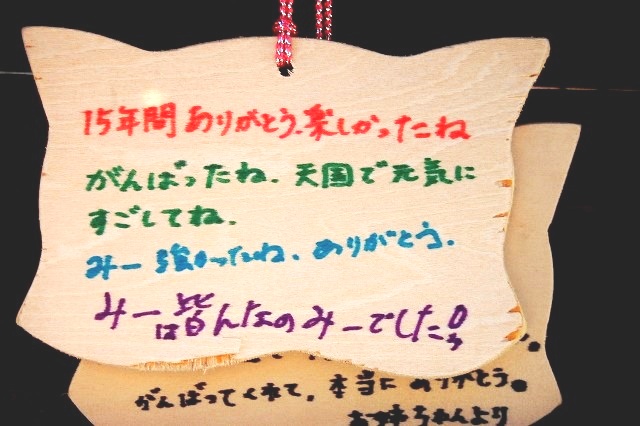 15年間ありがとう、楽しかったね
がんばったね、天国で元気に
すごしてね、
みー 強かったね、ありがとう、
みーは皆んなのみーでした
がんばってくれて、本当に ありがとう。
お姉ちゃんより